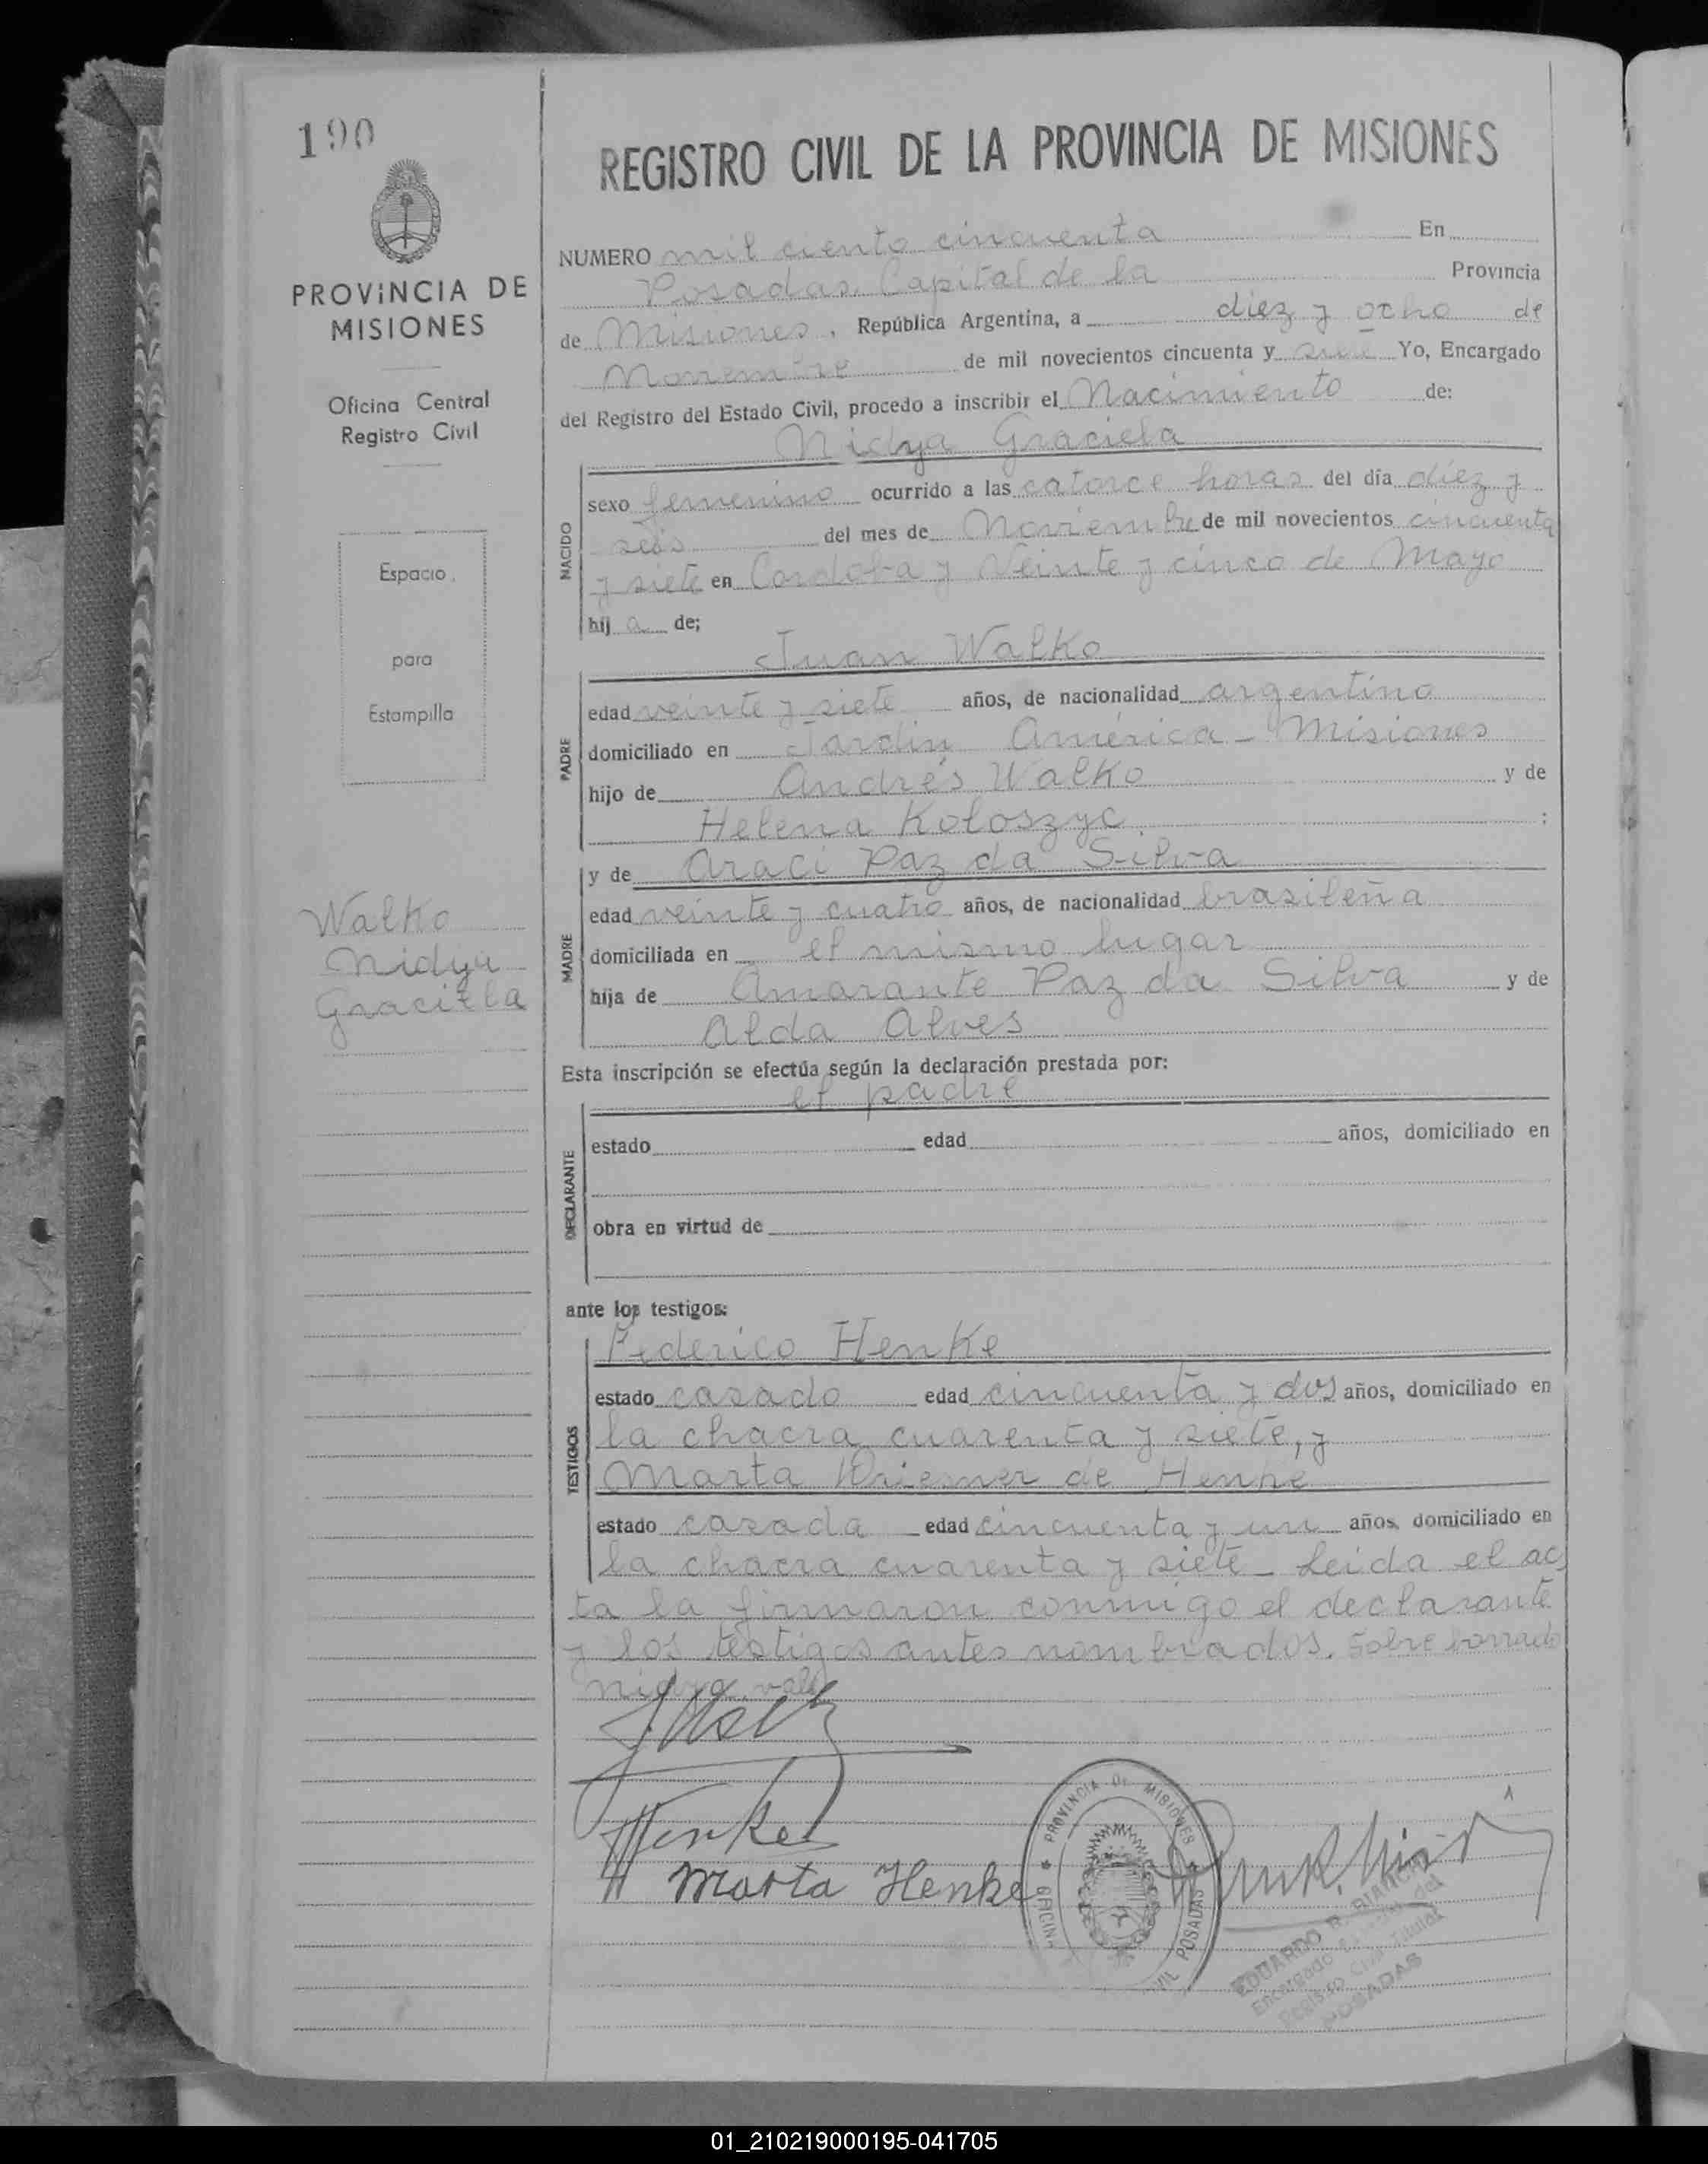 190
PROVINCIA DE
MISIONES
Oficina Central
Registro Civil
Espacio
para
Estampilla
Walko
Nidya
Graciela
REGISTRO CIVIL DE LA PROVINCIA DE MISIONES
NUMERO mil ciento cincuenta En
Posadas, Capital de la Provincia
de Misiones, República Argentina, a diez y ocho de
Noviembre de mil novecientos cincuenta y siete Yo, Encargado
del Registro del Estado Civil, procedo a inscribir el Nacimiento de:
Nidya Graciela
NACIDO
sexo femenino ocurrido a las catorce horas del día diez y
seis del mes de Noviembre de mil novecientos cincuenta
y siete en Cordoba y Veinte y cinco de Mayo
hij a de;
Juan Walko
PADRE
edad veinte y siete años, de nacionalidad argentino
domiciliado en Jardin América - Misiones
hijo de Andrés Walko y de
Helena Koloszyc :
y de Araci Paz da Silva
MADRE
edad veinte y cuatro años, de nacionalidad brasileña
domiciliada en el mismo lugar
hija de Amarante Paz da Silva y de
Alda Alves
Esta inscripción se efectúa según la declaración prestada por:
el padre
DECLARANTE
estado edad años, domiciliado en
obra en virtud de
ante los testigos:
Federico Henke
TESTIGOS
estado casado edad cincuenta y dos años, domiciliado en
la chacra cuarenta y siete, y
Marta Driesner de Henke
estado casada edad cincuenta y un años, domiciliado en
la chacra cuarenta y siete - Leida el ac
ta la firmaron conmigo el declarante
y los testigos antes nombrados. Sobre borrado
Nidya vale
Henke
Marta Henke
PROVINCIA DE MISIONES
OFICINA CIVIL POSADAS
EDUARDO R. BIANCHI
Encargado del
Registro Civil Titular
POSADAS
01_210219000195-041705